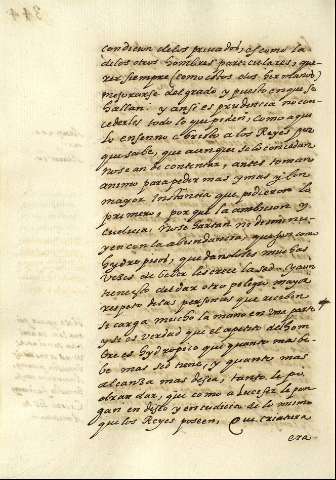 344
condicion de los priuados, es como la
de los otros hombres particulares, que
rer siempre (como estos dos hermanos)
mejorarse del grado y puesto en que se
hallan: y ansi es prudencia no con
cederles todo lo que piden, como aqui
lo enseño Christo a los Reyes por
que sabe, que aunque se lo concedan
no se an de contentar, antes toman
animo para pedir mas y mas y con
mayor instancia que pidieron lo
primero, porque la ambicion y
cudicia, no se hartan ni disminu
yen con la abundancia, que son como
hydropicos, que dandoles muchas
veces de beber les crece la sed. Y aun
tiene esto del dar otro peligro, maya
respeto de las personas que reciben
se carga mucho la mano en una parte
y si es verdad que el apetito del hom
bre es hydropico que quanto mas be
be mas sed tiene, y quanto mas
alcanza mas desea, tanto le po
drian dar, que como a Lucifer le pon
gan en deseo y en cudicia de lo mismo
que los Reyes poseen, Que criatura
era